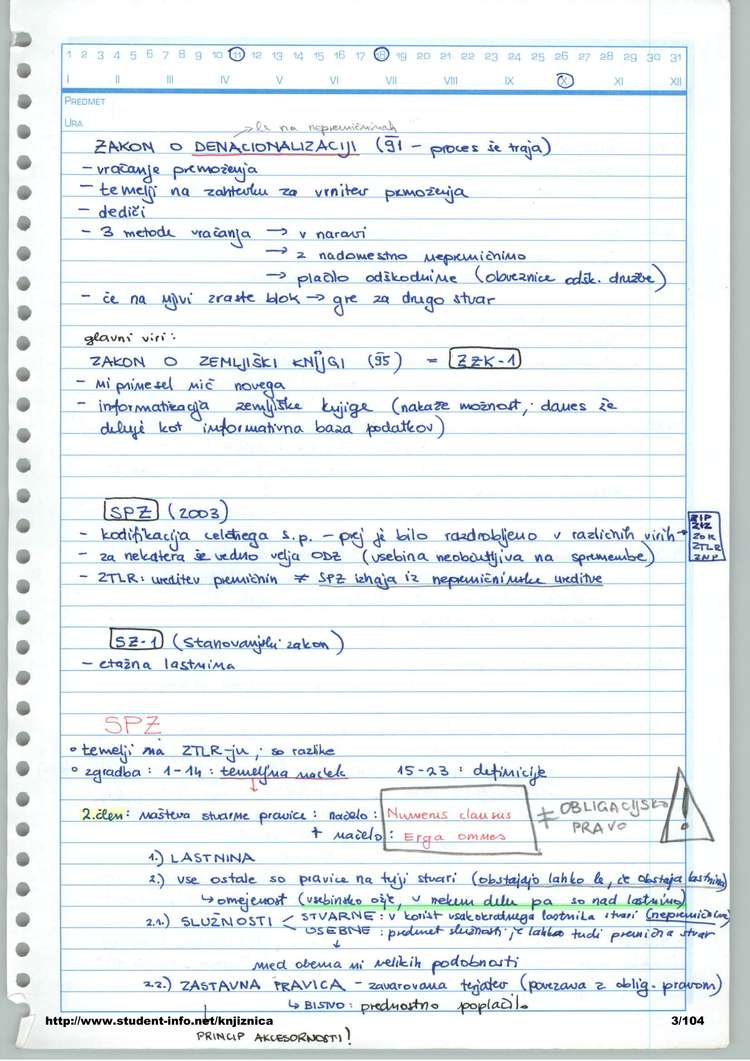 1 2 3 4 5 6 7 8 9 10 11 12 13 14 15 16 17 18 19 20 21 22 23 24 25 26 27 28 29 30 31
I II III IV V VI VII VIII IX X XI XII
PREDMET
URA
le na nepremičninah
ZAKON O DENACIONALIZACIJI (91 - proces še traja)
- vračanje premoženja
- temelji na zahtevku za vrnitev premoženja
- dediči
- 3 metode vračanja → v naravi
→ z nadomestno nepremičnino
→ plačilo odškodnine (obveznice odšk. družbe)
- če na njivi zraste blok → gre za drugo stvar
glavni viri:
ZAKON O ZEMLJIŠKI KNJIGI (95) = ZZK-1
- ni prinesel nič novega
- informatizacija zemljiške knjige (nakaže možnost, danes že
deluje kot informativna baza podatkov)
SPZ (2003)
- kodifikacija celotnega s.p. - prej je bilo razdrobljeno v različnih virih →
ZIP
ZIZ
ZOR
ZTLR
ZNP
- za nekatera še vedno velja ODZ (vsebina neobčutljiva na spremembe)
- ZTLR: ureditev premičnin ≠ SPZ izhaja iz nepremičninske ureditve
SZ-1 (Stanovanjski zakon)
- etažna lastnina
SPZ
° temelji na ZTLR-ju, so razlike
° zgradba: 1-14: temeljna načela 15-23: definicije
2.člen: našteva stvarne pravice: načelo: Numerus clausus
+ načelo: Erga omnes
≠ OBLIGACIJSKO PRAVO !
1.) LASTNINA
2.) vse ostale so pravice na tuji stvari (obstajajo lahko le, če obstaja lastnina)
↳ omejenost (vsebinsko ožje, v nekem delu pa so nad lastnino)
2.1.) SLUŽNOSTI < STVARNE: v korist vsakokratnega lastnika stvari (nepremičnine)
OSEBNE: predmet služnosti je lahko tudi premična stvar
↓
med obema ni velikih podobnosti
2.2.) ZASTAVNA PRAVICA - zavarovana terjatev (povezava z oblig. pravom)
↳ BISTVO: prednostno poplačilo
http://www.student-info.net/knjiznica 3/104
PRINCIP AKCESORNOSTI!